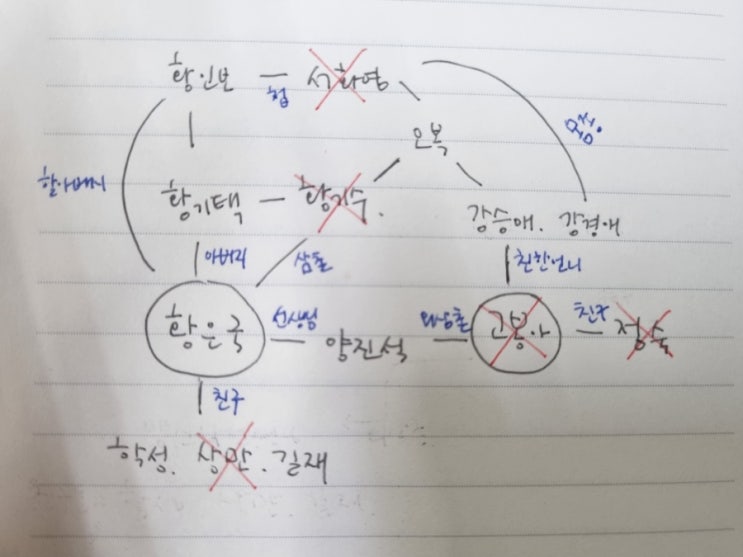 황인보 첩 서화영
오복
할아버지
황기택 황기수.
강승애. 강경애
아버지 삼촌 친한언니
황은국 선생님 양진석 외삼촌 친구
친구
학성. 상만. 길재